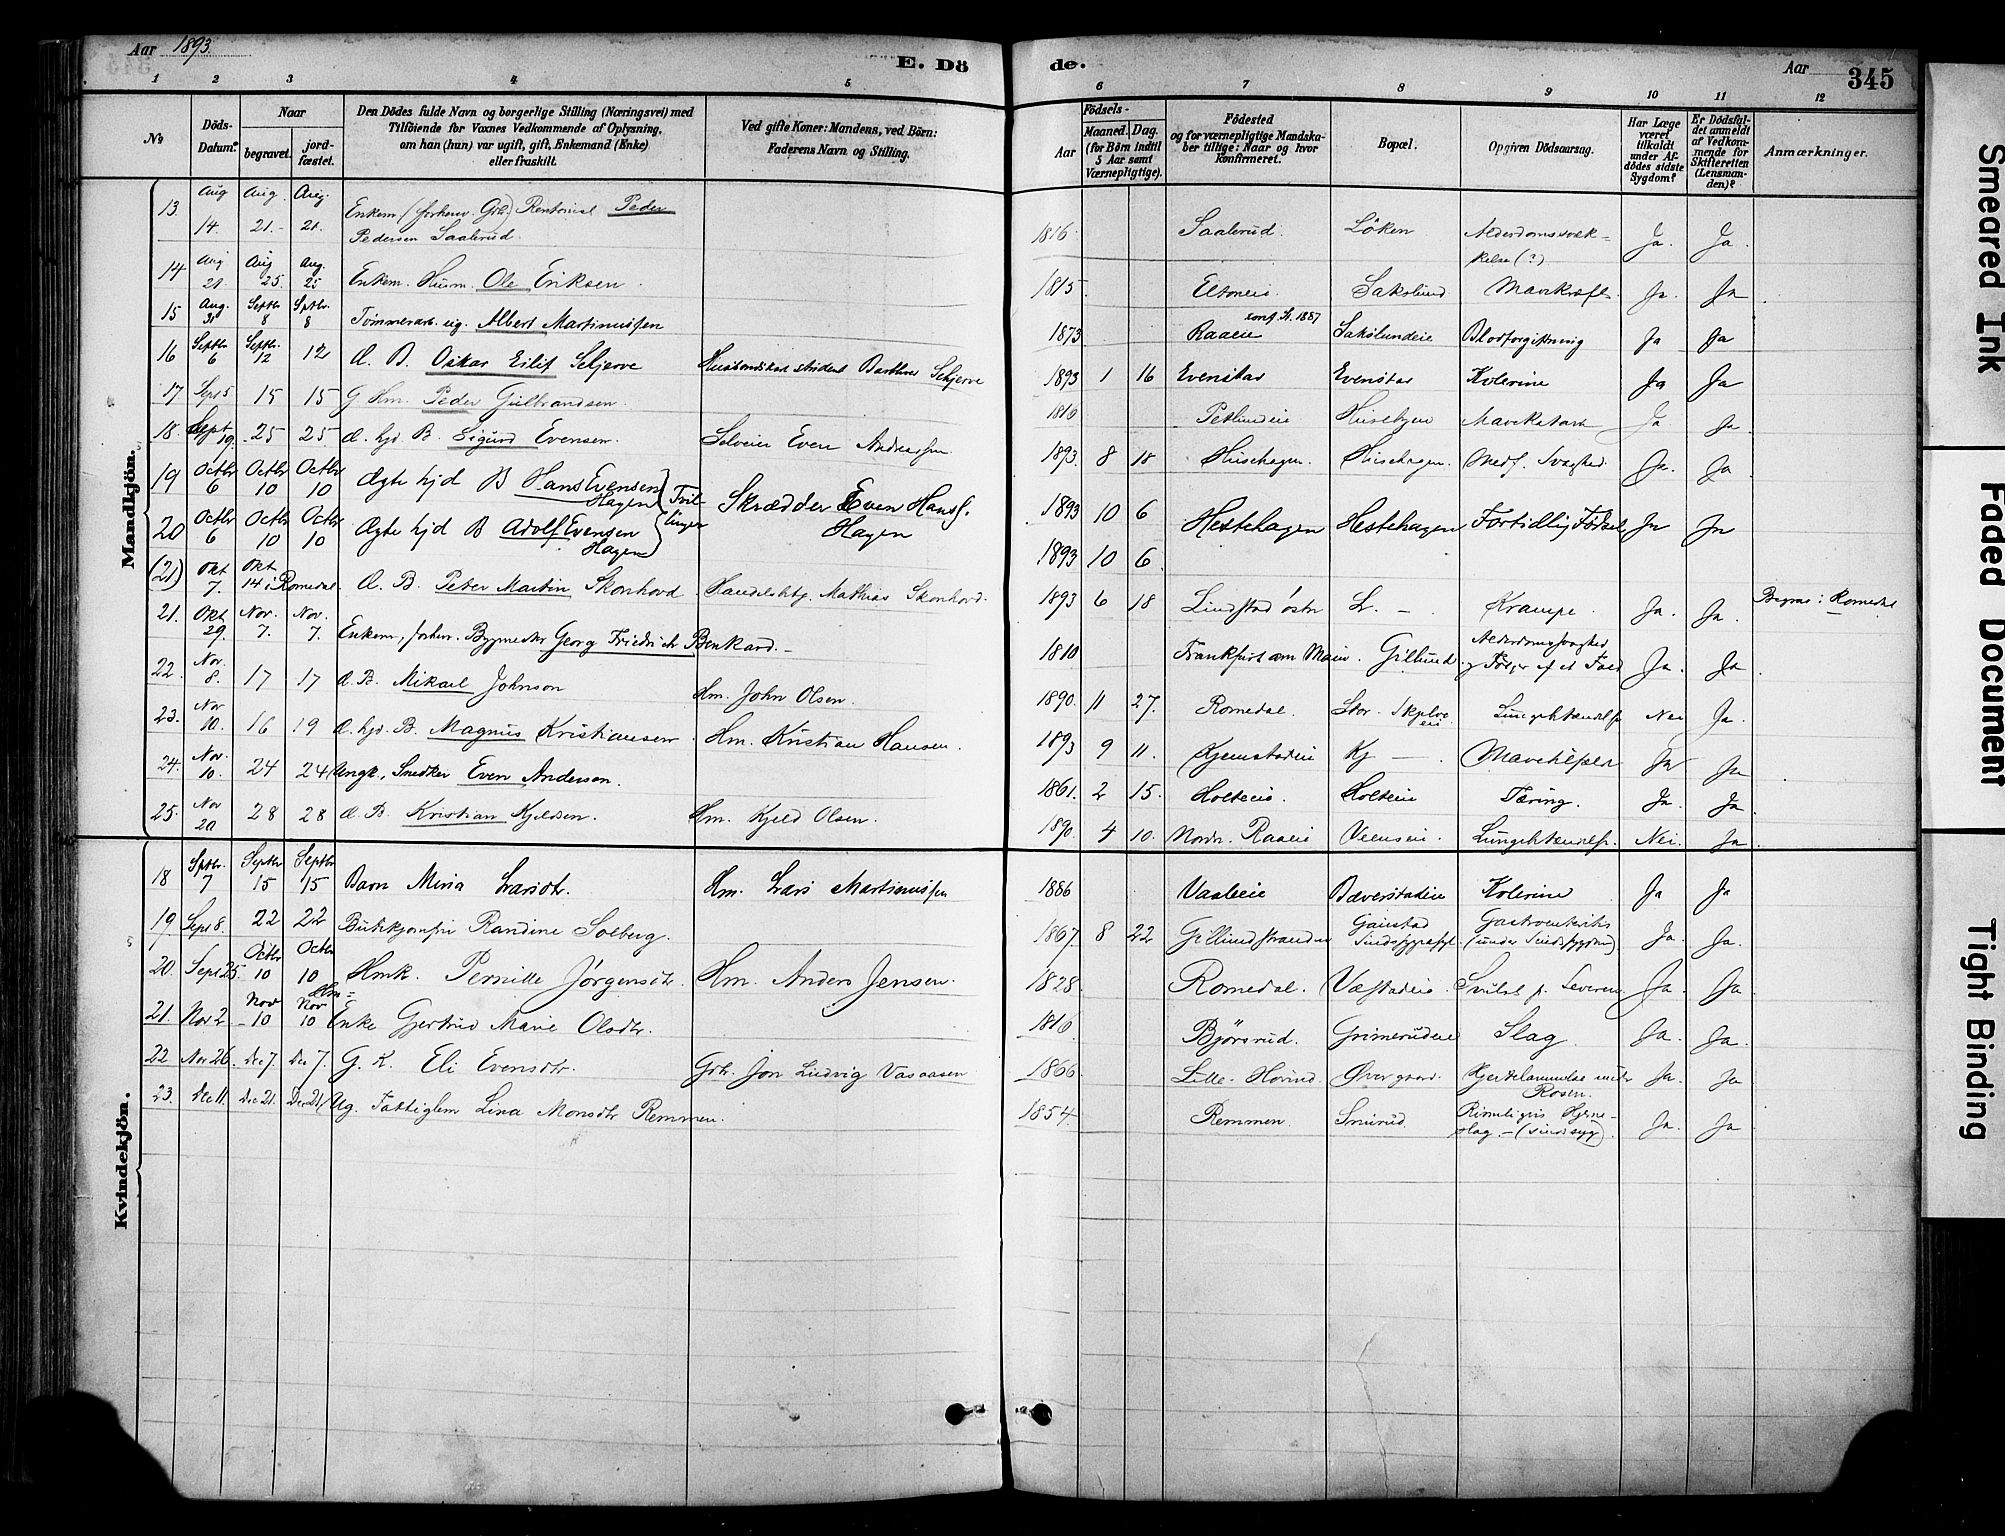 Aar 1893.
E. Dö
de.
Aar
345
1 2 3 4 5
6 7 8 9 10 11 12
№
Döds-Datum.
Naar
begravet. jord-fæstet.
Den Dödes fulde Navn og borgerlige Stilling (Næringsvei) med
Tilföiende for Voxnes Vedkommende af Oplysning,
om han (hun) var ugift, gift, Enkemand (Enke)
eller fraskilt.
Ved gifte Koner: Mandens, ved Börn:
Faderens Navn og Stilling.
Födsels-
Aar Maaned. Dag.
(for Börn indtil
5 Aar samt
Værnepligtige).
Födested
og for værnepligtige Mandska-
ber tillige: Naar og hvor
konfirmeret.
Bopæl.
Opgiven Dödsaarsag.
Har Læge
været
tilkaldt
under Af-
dödes sidste
Sygdom?
Er Dödsfal-
det anmeldt
af Vedkom-
mende for
Skifteretten
(Lensman-
den)?
Anmærkninger.
Mandkjön.
13. Aug 14. Aug. 21.- Aug. 21. Enkem (forhenv. Grb.) Peder Pedersen Saalerud. 1816 Saalerud. Löken Alderdomssvæk=kelse (?) Ja. Ja.
14 Aug 21. Aug 25. Aug. 25 Enkem. Husm. Ole Eriksen. 1815 Saklund Ja. Ja
15 Aug. 31 Septbr 8 Septbr. 8 Albert Martinussen 1873 Raaeie konf. St. 1887 Sakslundeie Blodforgiftning Ja Ja
16 Septbr 6 Septbr. 12 12 Æ. B. Oskar Eilif Schjerve Schjerve 1893 1 16 Evenstad Evenstad Kolerine Ja Ja
17 Sept 5 15 15 G Hm. Peder Gulbrandsen. 1810 Ja Ja
18. Sept 19. 25 25 Æ. hjd B. Sigurd Evensen. Selveier Even Andreassen 1893. 8 18 Husehagen. Husehagen. Medf. Svaghed. Ja. Ja
19 Octbr 6 Octbr 10 Octbr 10 Ægte hjd B Hans Evensen Hagen Tvil-linger Skrædder Even Hans. Hagen 1893 10 6 Hestehagen Hestehagen Fortidlig Födsel Ja Ja
20 Octbr 6 Octbr 10 Octbr 10 Ægte hjd B Adolf Evensen Hagen 1893 10 6.
(21) Okt 7. Okt 14 i Romedal Æ. B. Peter Martin Skonhovd Handelsbtj. Mathias Skonhovd. 1893 6 18 Lindstad östr L. — Krampe. Ja. Ja. Begrav. i Romedal
21. Okt 29. Nov. 7. Nov. 7. Enkem, forhen. Bygmester Georg Friedrich Benkard.- 1810 Frankfurt am Main. Gillund. Alderdomssvaghed og Fölger af et Fald Ja. Ja
22. Nov. 8. 17 17 Æ. B. Mikael Johnson Hm. John Olsen. 1890. 11 27. Romedal. Nei Ja.
23. Nov 10. 16 19 Æ. hjd. B. Magnus Kristiansen Hm. Kristian Hansen. 1893 9 11. Kjemstadeie Kj — . Ja Ja
24. Nov. 10. 24 24 Ungk, Snedker Even Anderson. 1861. 2 15. Holteeie Holteeie Tæring. Ja. Ja
25. Nov 20 28 28 Æ. B. Kristian Kjeldsen. Hm. Kjeld Olsen. 1890. 4 10. Nordr. Raaeie Nei. Ja
Kvindekjön.
18 Septbr. 7 Septbr 15 Septbr 15 Barn Mina Larsdtr. Hm. Lars Martinussen 1886 Vaaleie Bæverstadeie Kolerine Ja Ja
19 Sept 8. 22 22 Butikjomfru Randine Solberg. 1867 8 22 Gillundstranden Gaustad Sindssygeasyl. Gastroenteritis (under Sindssygdom) Ja. Ja.
20. Sept 25. Octbr 10 Octbr 10 Hmk. Pernille Jörgensdtr Hm. Anders Jensen. 1828. Romedal. Ja. Ja
21. Nov 2 Nov 10 Nov 10 Hm= Enke Gjertrud Marie Olsdtr. 1816 Björsrud. Grimerudeie Slag Ja. Ja.
22 Nov 26. Dec 7. Dec 7. G. K. Eli Evensdtr. Grb. Jon Ludvig Vasaasen 1866 Lille-Hovind. Övergaard. Hjertelammelse under Rosen. Ja. Ja
23. Dec 11. Dec 21. Dec 21. Ug. Fattiglem Lina Monsdtr Remmen. 1854. Remmen. Smurud Rimeligvis Hjerne-slag.-(sindssyg). Ja. Ja
Smeared Ink
Faded Document
Tight Binding